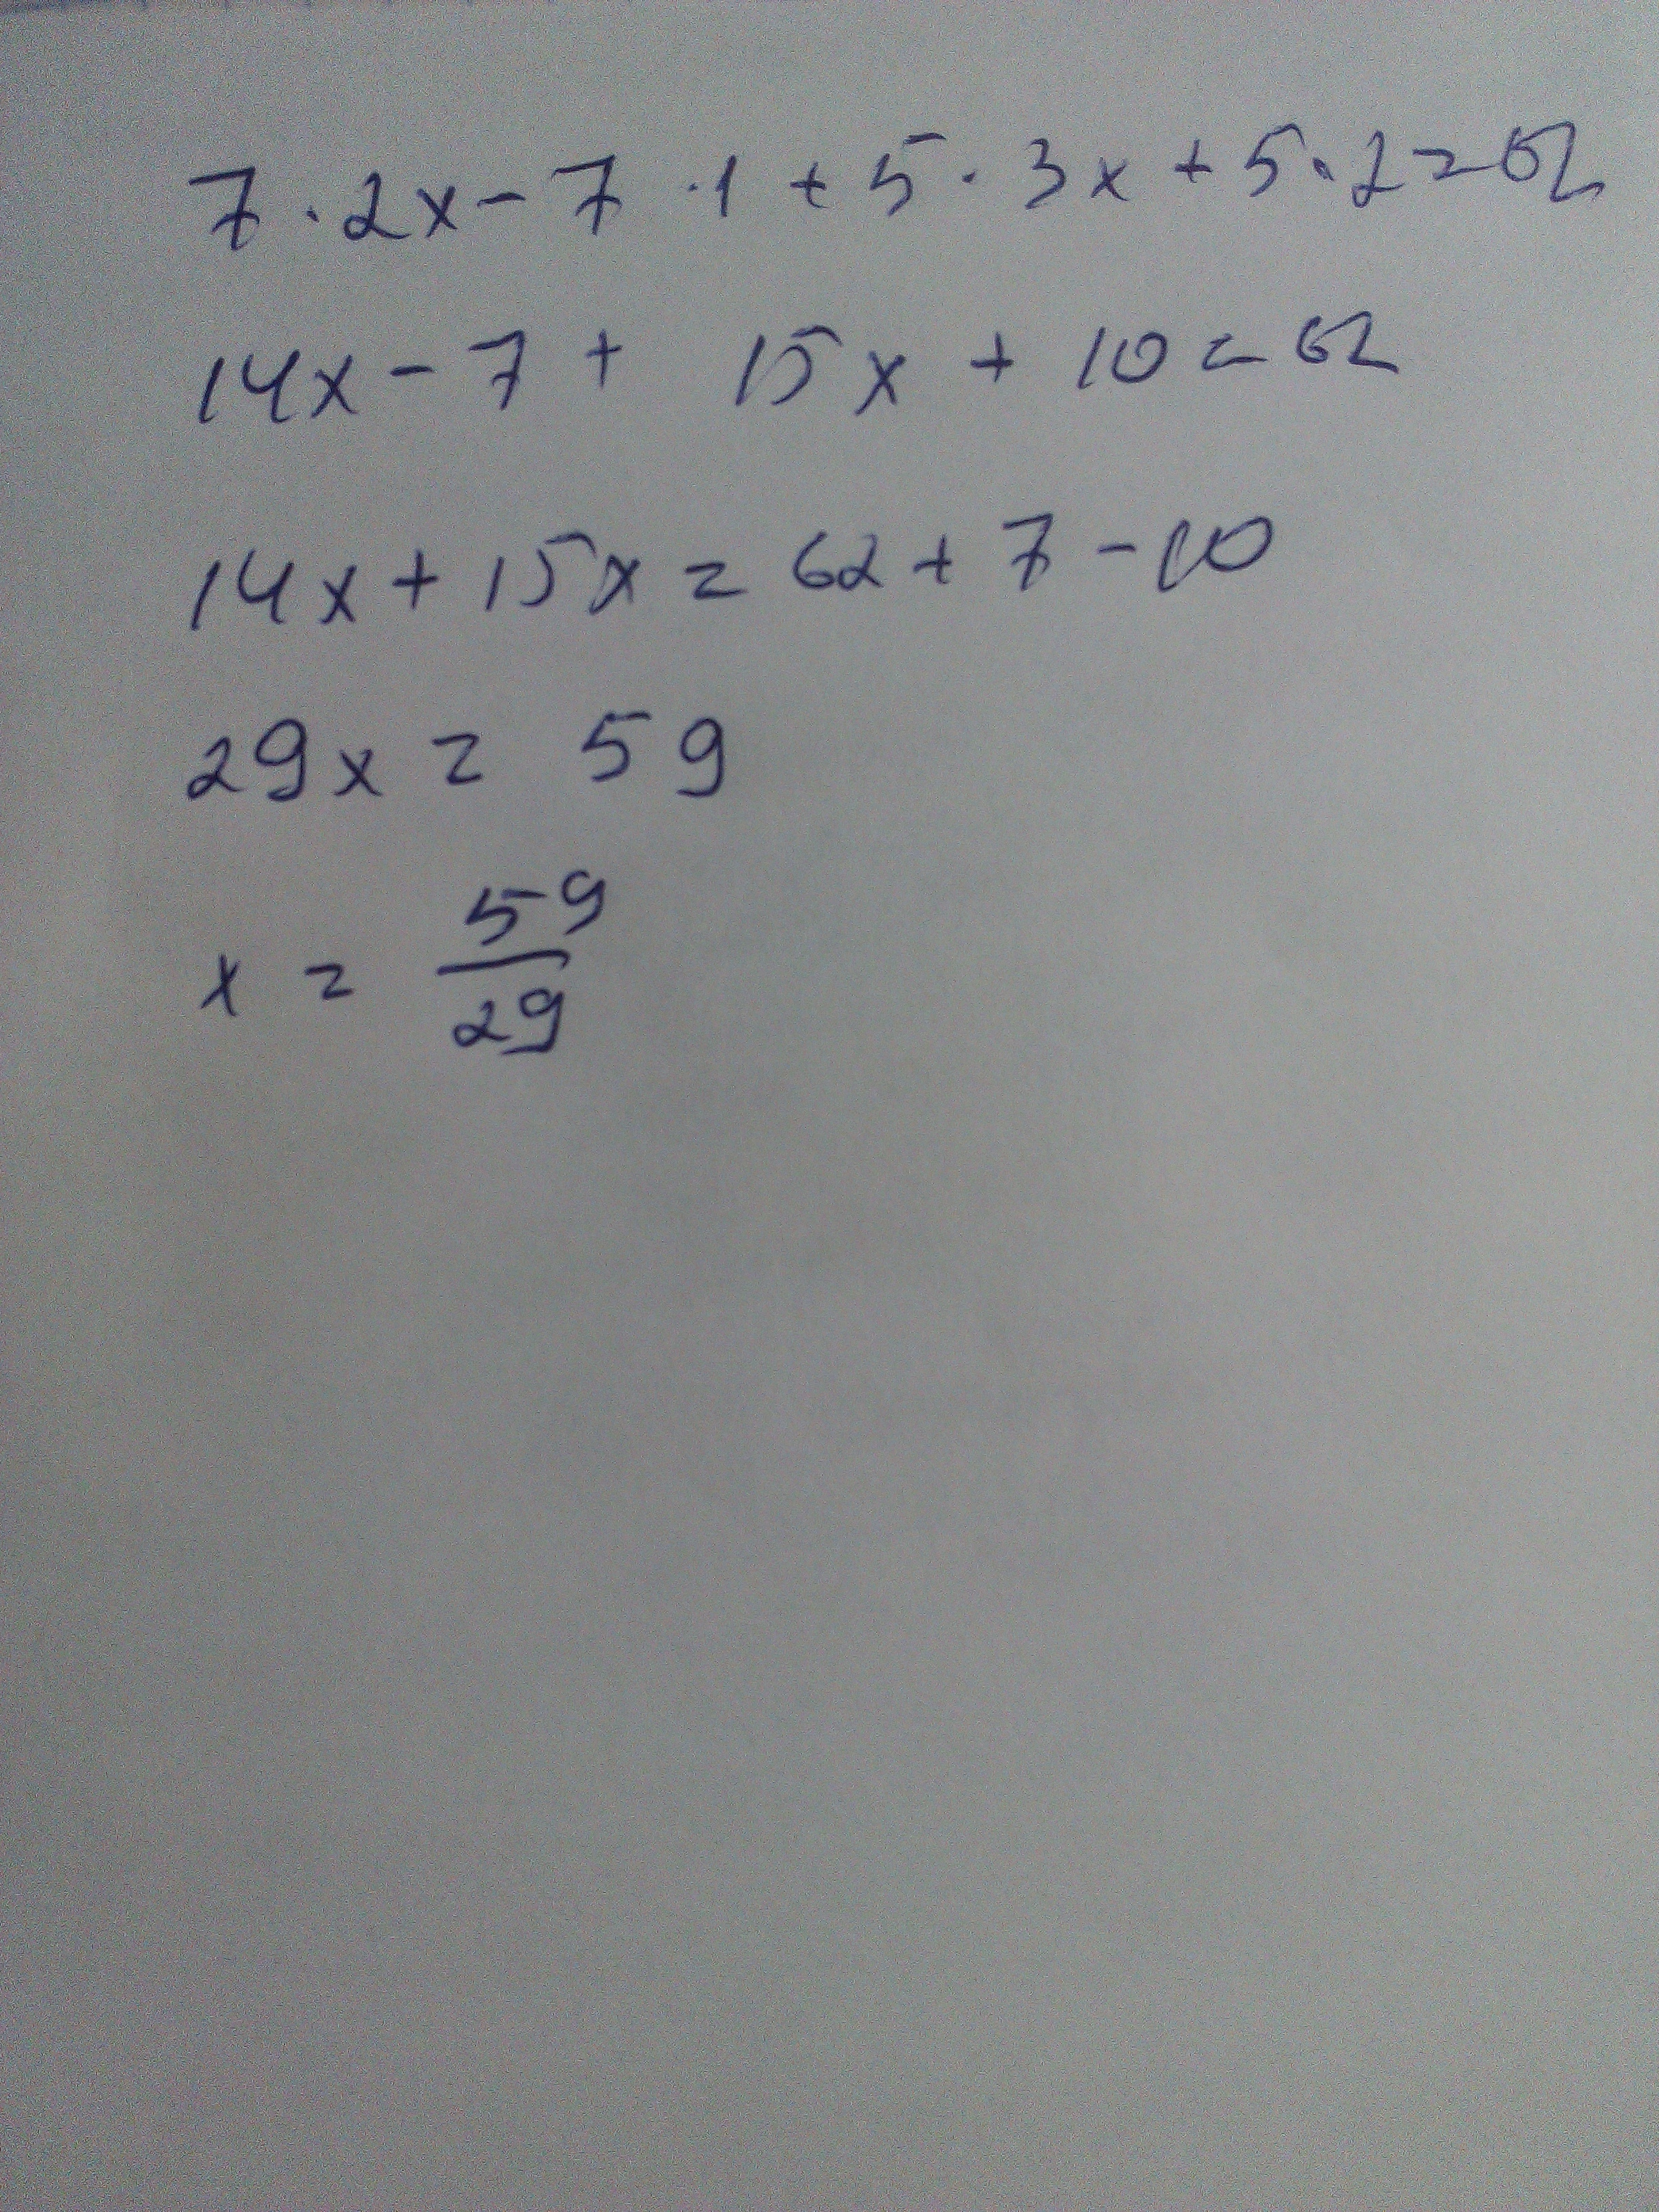 7 · 2x - 7 · 1 + 5 · 3x + 5 · 2 = 62
14x - 7 + 15x + 10 = 62
14x + 15x = 62 + 7 - 10
29x = 59
x = 59/29